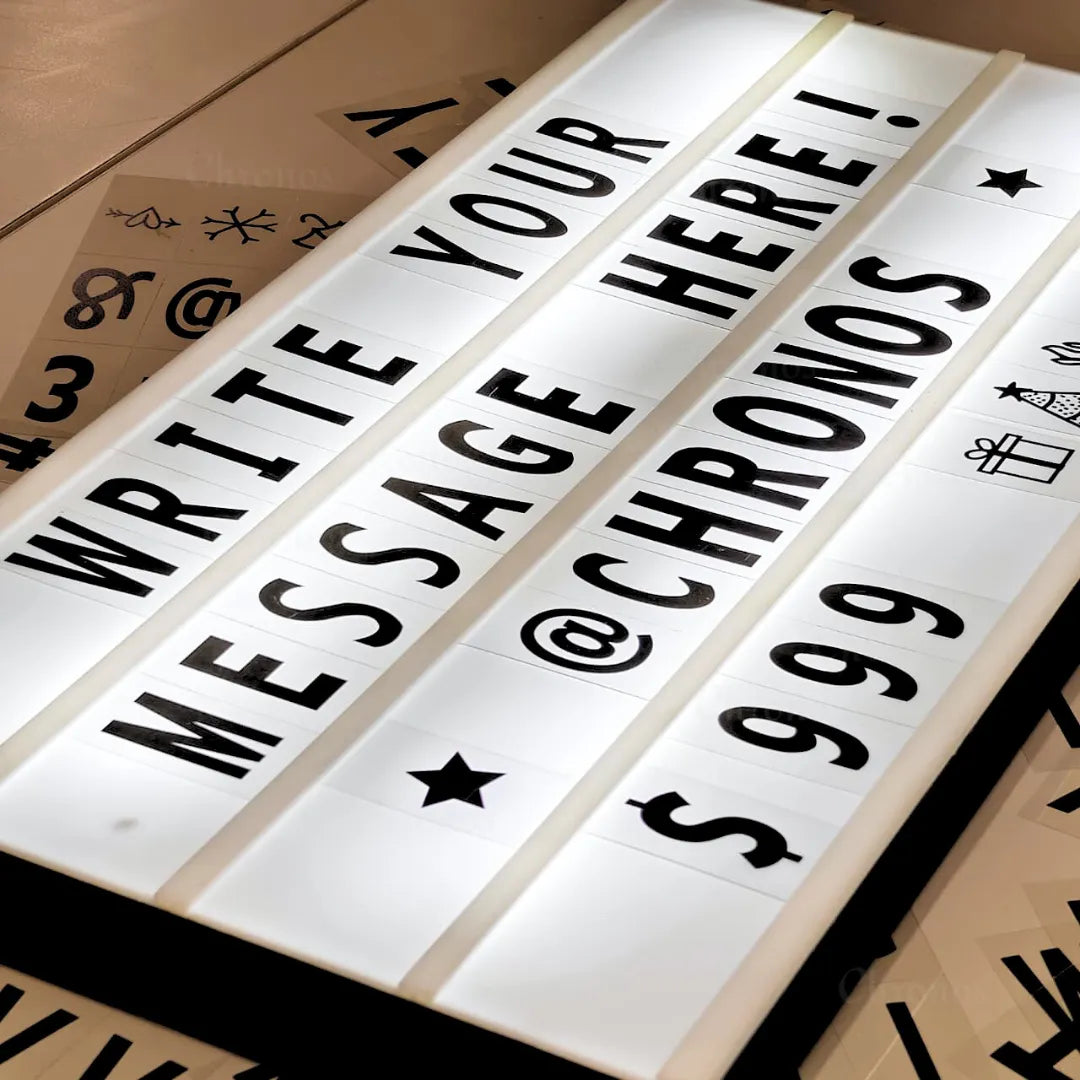 WRITE YOUR
MESSAGE HERE!
★ @CHRONOS ★
$ 999
& @
3
#
Chronos
Chronos